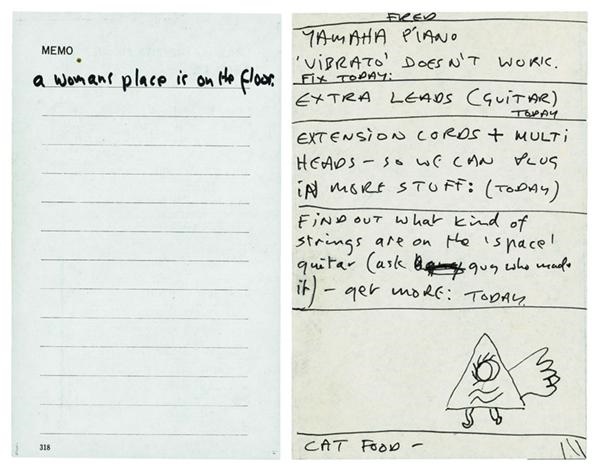 MEMO
a womans place is on the floor.
318
FRED
YAMAHA PIANO
'VIBRATO' DOESN'T WORK.
FIX TODAY:
EXTRA LEADS (GUITAR)
TODAY
EXTENSION CORDS + MULTI
HEADS - SO WE CAN PLUG
IN MORE STUFF: (TODAY)
FIND OUT what kind of
strings are on the 'space'
guitar (ask guy who made
it) - get more: TODAY.
CAT FOOD -